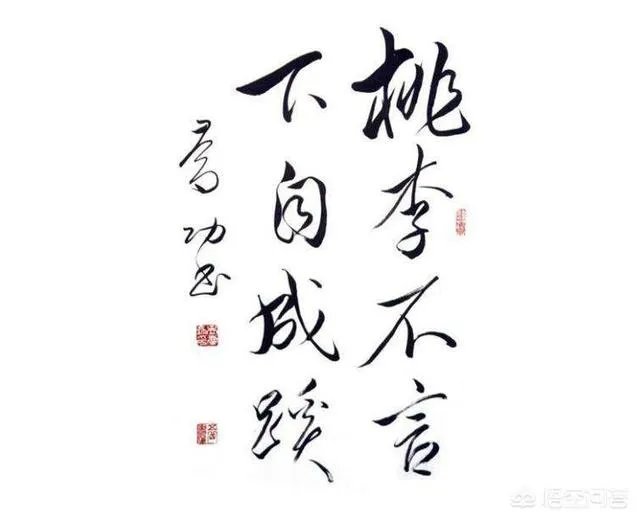 桃李不言
下自成蹊
功书
悟空问答